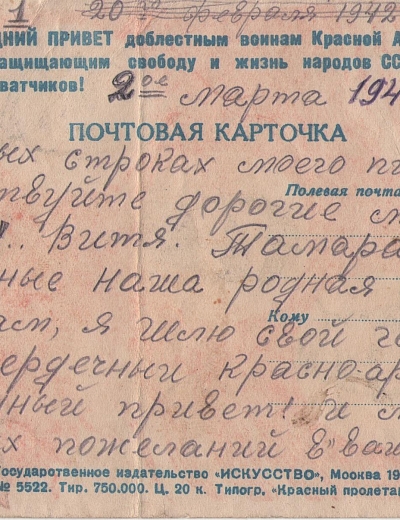 1 20го февраля 1942
ДНИЙ ПРИВЕТ доблестным воинам Красной А
ащищающим свободу и жизнь народов СС
ватчиков! 2ое марта 194
ПОЧТОВАЯ КАРТОЧКА
ых строках моего пи
Полевая почта
ствуйте дорогие м
Витя. Тамара
ные наша родная
Кому
ам, я шлю свой го
ердечный красно-ар
ный привет! и м
х пожеланий в ваш
Государственное издательство «ИСКУССТВО», Москва 19
№ 5522. Тир. 750.000. Ц. 20 к. Типогр. «Красный пролета